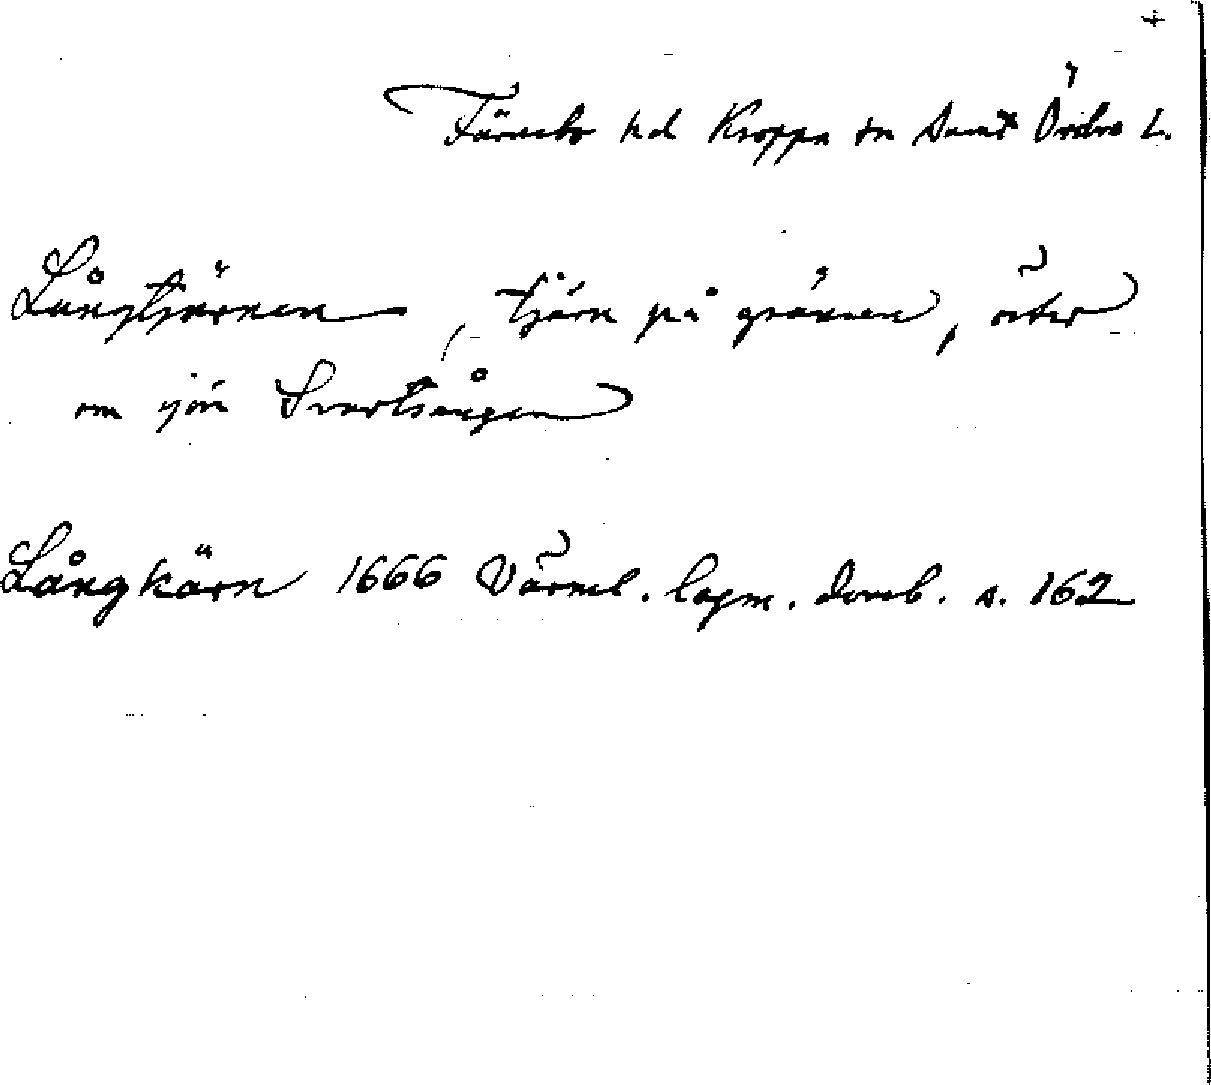 +
Färnebo hd Kroppa sn samt Örebro L.
Långtjärnen, tjärn på gränsen, öster
om sjön Svartsången
Långkärn 1666 Värml. lagm. domb. s. 162